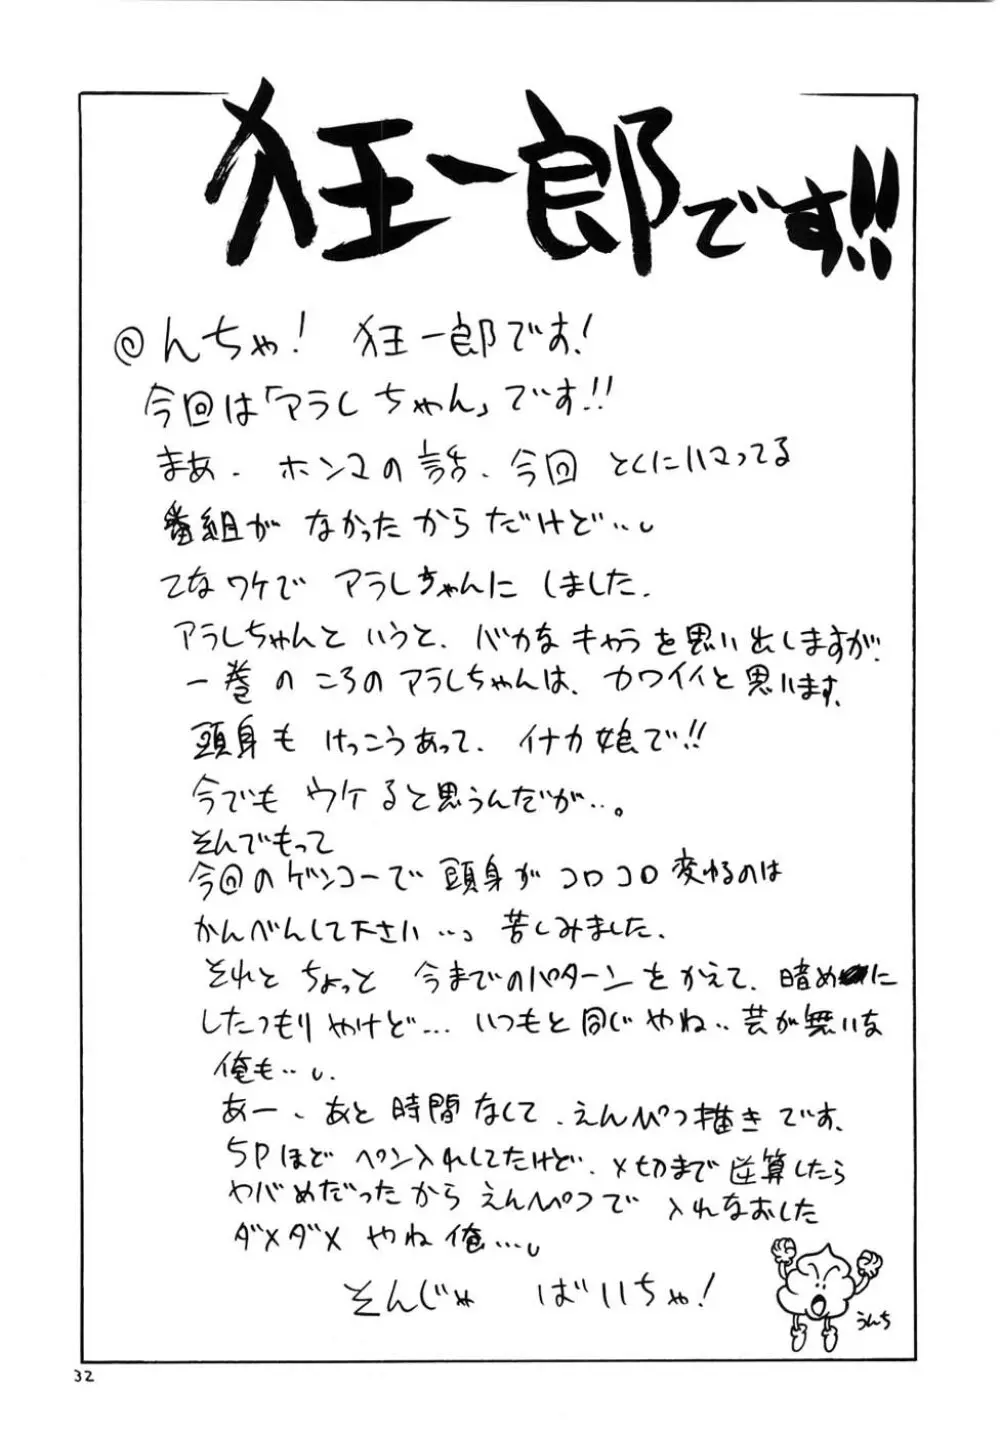 狂一郎です!!
@んちゃ! 狂一郎です!
今回は「アラレちゃん」です!!
まあ、ホンマの話、今回とくにハマってる
番組がなかったからだけど…。
てなワケでアラレちゃんにしました。
アラレちゃんというと、バカなキャラを思い出しますが、
一巻のころのアラレちゃんは、カワイイと思います。
頭身もけっこうあって、イナカ娘で!!
今でもウケると思うんだが…。
そんでもって
今回のゲンコーで頭身がコロコロ変わるのは
かんべんして下さい…。苦しみました。
それとちょっと今までのパターンをかえて、暗めに
したつもりやけど…いつもと同じやね…芸が無いな
俺も…。
あー、あと時間なくて、えんぴつ描きです。
5Pほどペン入れしてたけど、〆切まで逆算したら
ヤバめだったからえんぴつで入れなおした
ダメダメやね俺…。
そんじゃ ばいちゃ!
うんち
32